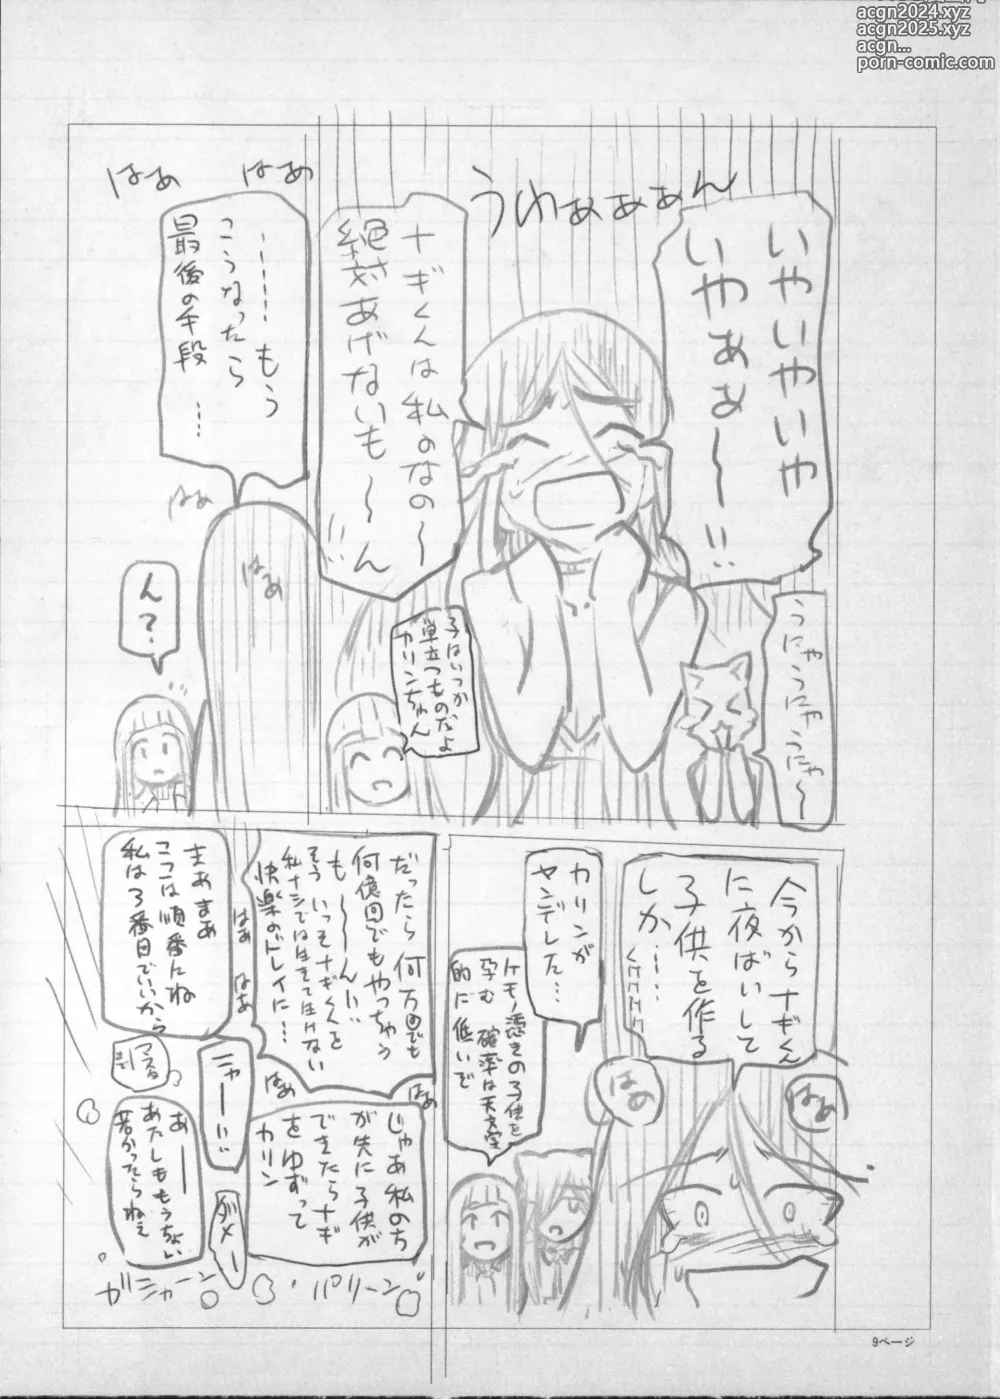 acgn2024.xyz
acgn2025.xyz
acgn...
porn-comic.com
いやいやいや
いやぁぁ〜!!
うわぁぁぁん
ナギくんは私のなの〜
絶対あげないも〜ん
うにゃうにゃうにゃ〜
子はいつか
巣立つものだよ
カリンちゃん
はぁ
はぁ
……もう
こうなったら
最後の手段
…
はぁ
はぁ
ん?
今からナギくん
に夜ばいして
子供を作る
しか……
はぁ
はぁ
カリンが
ヤンデレした…
ケモノ憑きの子供を
孕む確率は天文学
的に低いで
だったら何万回でも
何億回でもやっちゃう
も〜〜ん!!
そういっそナギくんを
私ナシでは生きて生けない
快楽のドレイに…
はぁ
はぁ
はぁ
はぁ
まあまあ
ここは順番にね
私は3番目でいいから
じゃあ私の方
が先に子供が
できたらナギ
をゆずって
カリン
ニャーー!!
ダメー
あーー
あたしももうちょい
若かったらねぇ
ガシャーン
パリーン
9ページ